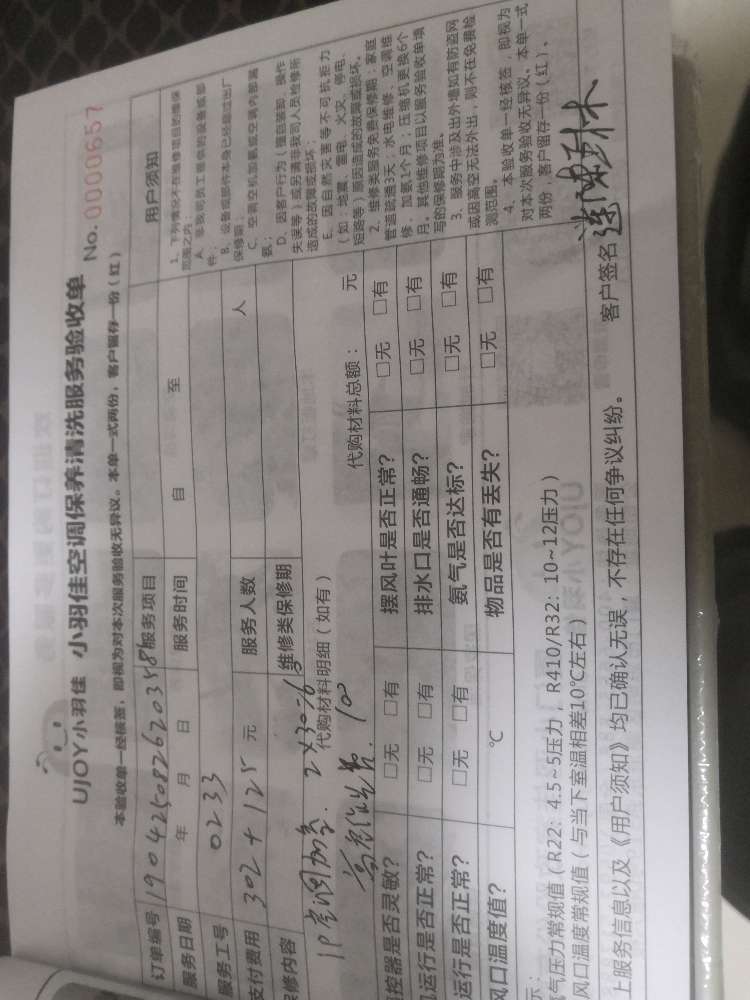 UJOY小羽佳 小羽佳空调保养清洗服务验收单 No. 0000657
本验收单一经核签，即视为对本次服务验收无异议。本单一式两份，客户留存一份（红）
订单编号 服务项目
服务日期 年 月 日 服务时间 自 至
服务工号 0233
支付费用 302 + 125 元 服务人数 人
维修类保修期
代购材料明细（如有） 代购材料总额： 元
2×30=6
100
控器是否灵敏？ □无 □有 摆风叶是否正常？ □无 □有
运行是否正常？ □无 □有 排水口是否通畅？ □无 □有
运行是否正常？ □无 □有 氨气是否达标？ □无 □有
风口温度值？ ℃ 物品是否有丢失？ □无 □有
示：
气压力常规值（R22：4.5~5压力，R410/R32：10~12压力）
风口温度常规值（与当下室温相差10℃左右）
上服务信息以及《用户须知》均已确认无误，不存在任何争议纠纷。 客户签名
用户须知
1、下列情况不在维修项目的维保
范围之内：
A、非我司员工提供的设备或部
件；
B、设备或部件本身已经超过出厂
保修期；
C、空调空机加氨或空调内部漏
氨；
D、因客户行为（擅自装卸、操作
失误等）或另请非我司人员检修所
造成的故障或损坏；
E、因自然灾害等不可抗拒力
（如：地震、雷电、火灾、停电、
短路等）原因造成的故障或损坏。
2、维修类服务免费保修期：家庭
管道疏通3天；水电维修、空调维
修、加氨1个月；压缩机更换6个
月。其他维修项目以服务验收单填
写的保修期为准。
3、服务中涉及出外墙如有防盗网
或因高空无法外出，则不在免费检
测范围。
4、本验收单一经核签，即视为
对本次服务验收无异议。本单一式
两份，客户留存一份（红）、